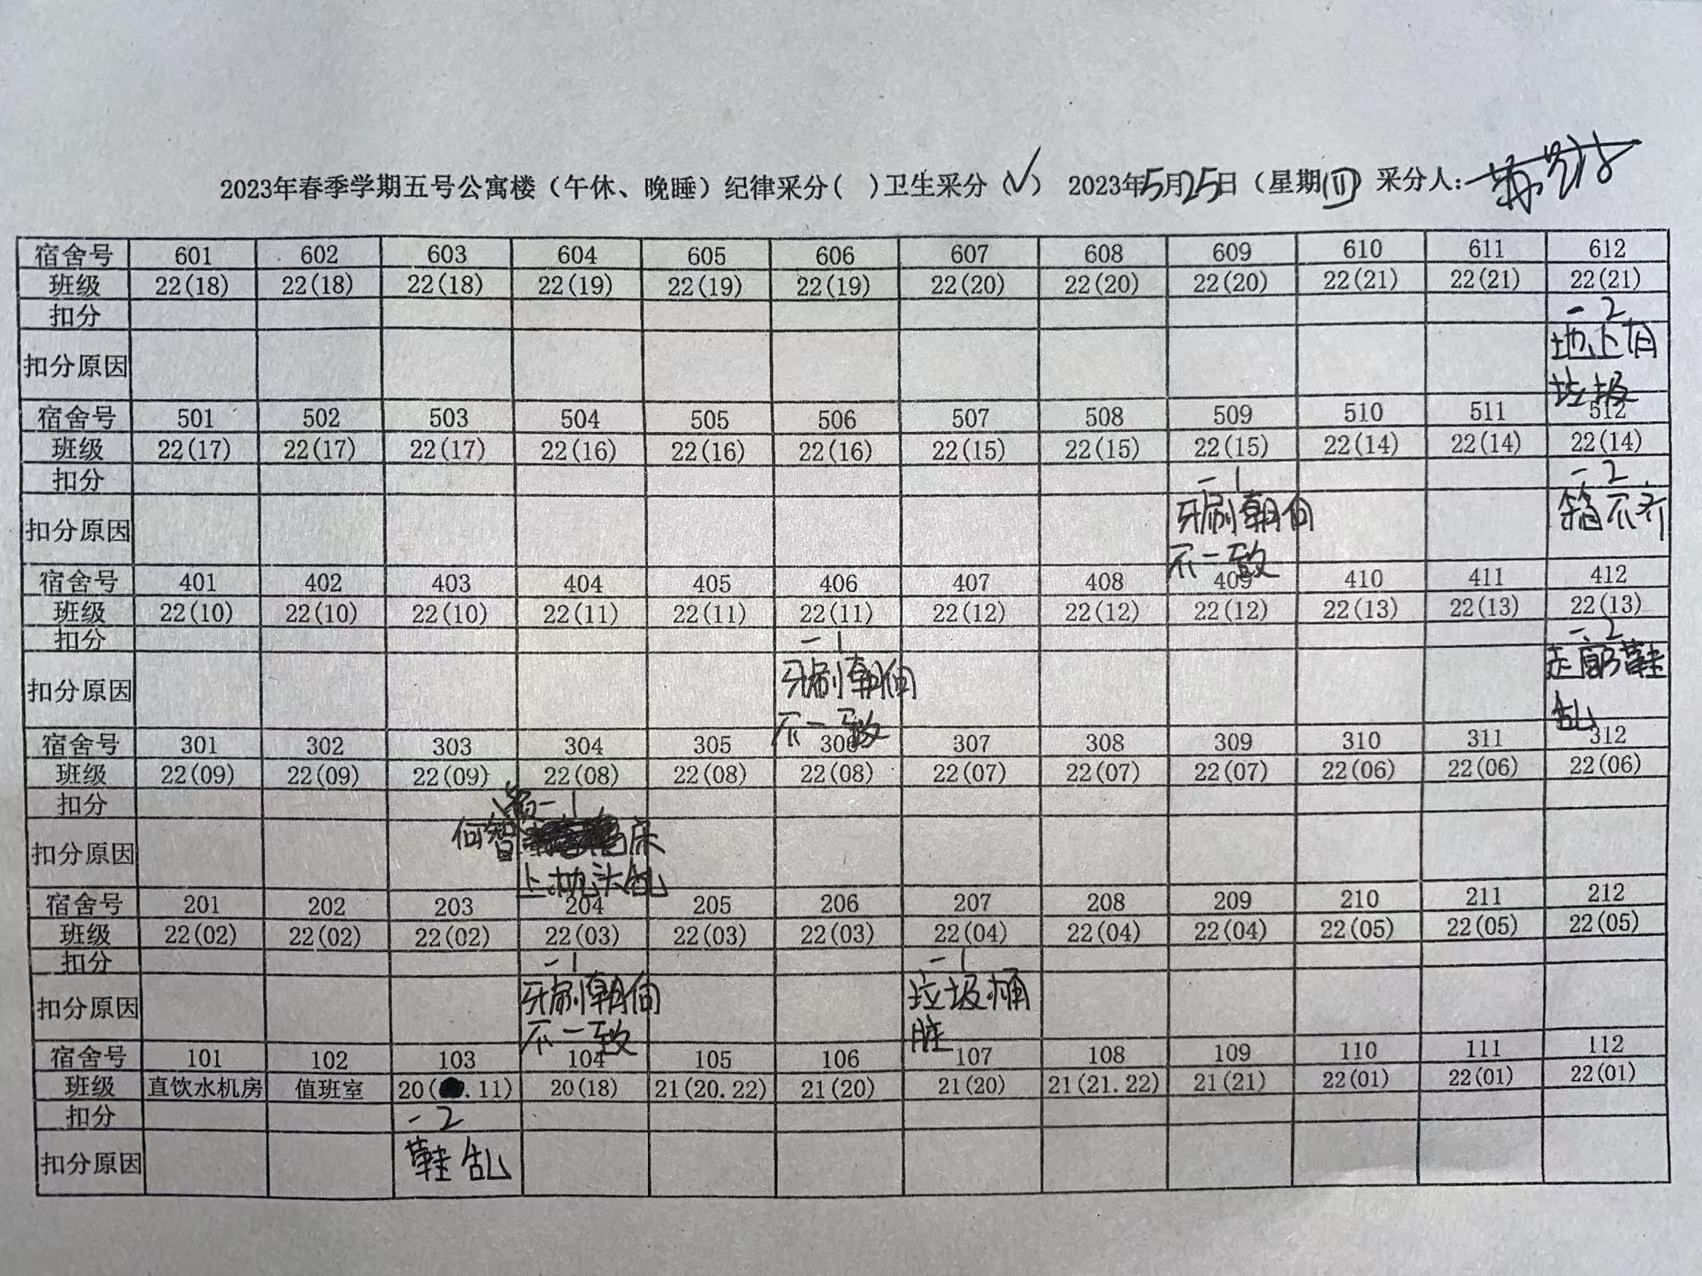 2023年春季学期五号公寓楼（午休、晚睡）纪律采分( )卫生采分（√） 2023年5月25日（星期四）采分人:
宿舍号 601 602 603 604 605 606 607 608 609 610 611 612
班级 22(18) 22(18) 22(18) 22(19) 22(19) 22(19) 22(20) 22(20) 22(20) 22(21) 22(21) 22(21)
扣分 -2
扣分原因 地上有
垃圾
宿舍号 501 502 503 504 505 506 507 508 509 510 511 512
班级 22(17) 22(17) 22(17) 22(16) 22(16) 22(16) 22(15) 22(15) 22(15) 22(14) 22(14) 22(14)
扣分 -1 -2
扣分原因 牙刷朝向 箱不齐
不一致
宿舍号 401 402 403 404 405 406 407 408 409 410 411 412
班级 22(10) 22(10) 22(10) 22(11) 22(11) 22(11) 22(12) 22(12) 22(12) 22(13) 22(13) 22(13)
扣分 -1 -2
扣分原因 牙刷朝向 走廊鞋
不一致 乱
宿舍号 301 302 303 304 305 306 307 308 309 310 311 312
班级 22(09) 22(09) 22(09) 22(08) 22(08) 22(08) 22(07) 22(07) 22(07) 22(06) 22(06) 22(06)
扣分 -1
扣分原因 何智 床
上枕头乱
宿舍号 201 202 203 204 205 206 207 208 209 210 211 212
班级 22(02) 22(02) 22(02) 22(03) 22(03) 22(03) 22(04) 22(04) 22(04) 22(05) 22(05) 22(05)
扣分 -1 -1
扣分原因 牙刷朝向 垃圾桶
不一致 脏
宿舍号 101 102 103 104 105 106 107 108 109 110 111 112
班级 直饮水机房 值班室 20( .11) 20(18) 21(20.22) 21(20) 21(20) 21(21.22) 21(21) 22(01) 22(01) 22(01)
扣分 -2
扣分原因 鞋乱